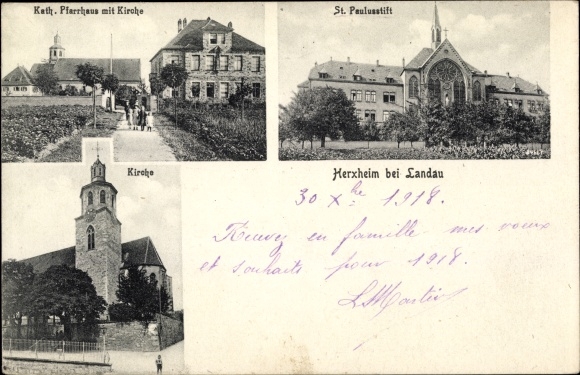 Kath. Pfarrhaus mit Kirche
St. Paulusstift
Kirche
Herxheim bei Landau
30 Xbre 1918.
Recevez en famille mes vœux
et souhaits pour 1918.
L Martin